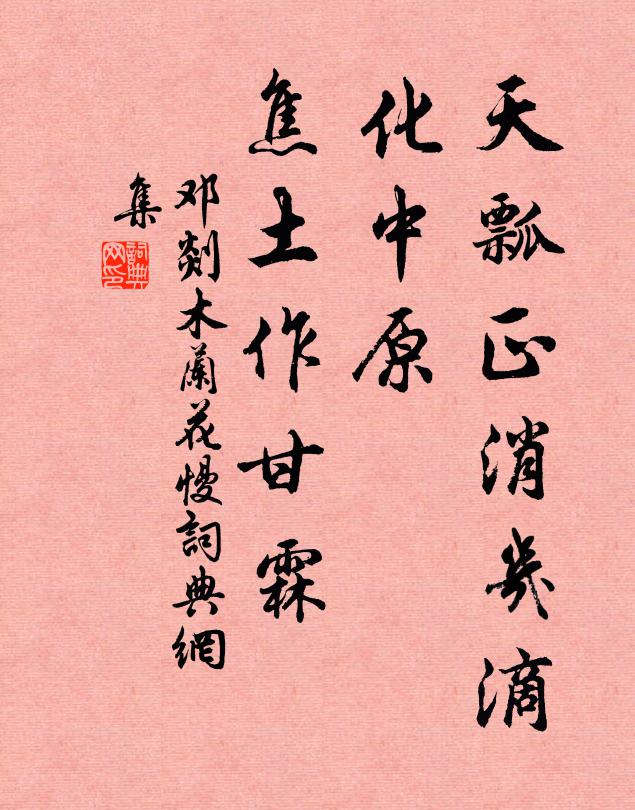 天瓢正消幾滴
化中原
焦土作甘霖
邓剡木蘭花慢詞典網
集
詞典
网印